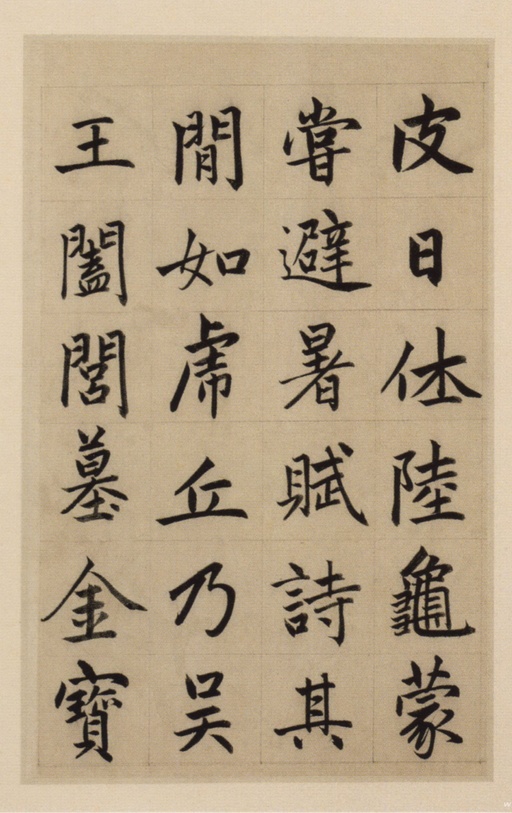 皮日休陸龜蒙
嘗避暑賦詩其
閒如虎丘乃吳
王闔閭墓金寶